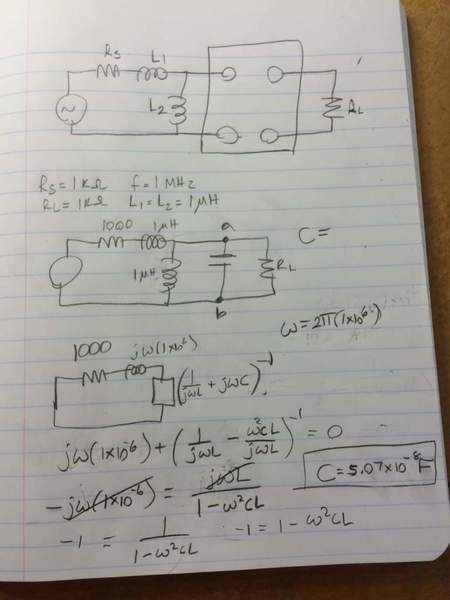 Rs L1
~ L2 RL
Rs = 1KΩ f = 1 MHz
RL = 1KΩ L1 = L2 = 1μH
1000 1μH a C =
1μH RL
b
ω = 2π(1×10⁶)
1000 jω(1×10⁻⁶)
(1/jωL + jωC)⁻¹
jω(1×10⁻⁶) + (1/jωL - ω²CL/jωL)⁻¹ = 0
-jω(1×10⁻⁶) = jωL/1-ω²CL C = 5.07×10⁻⁸ F
-1 = 1/1-ω²CL -1 = 1-ω²CL